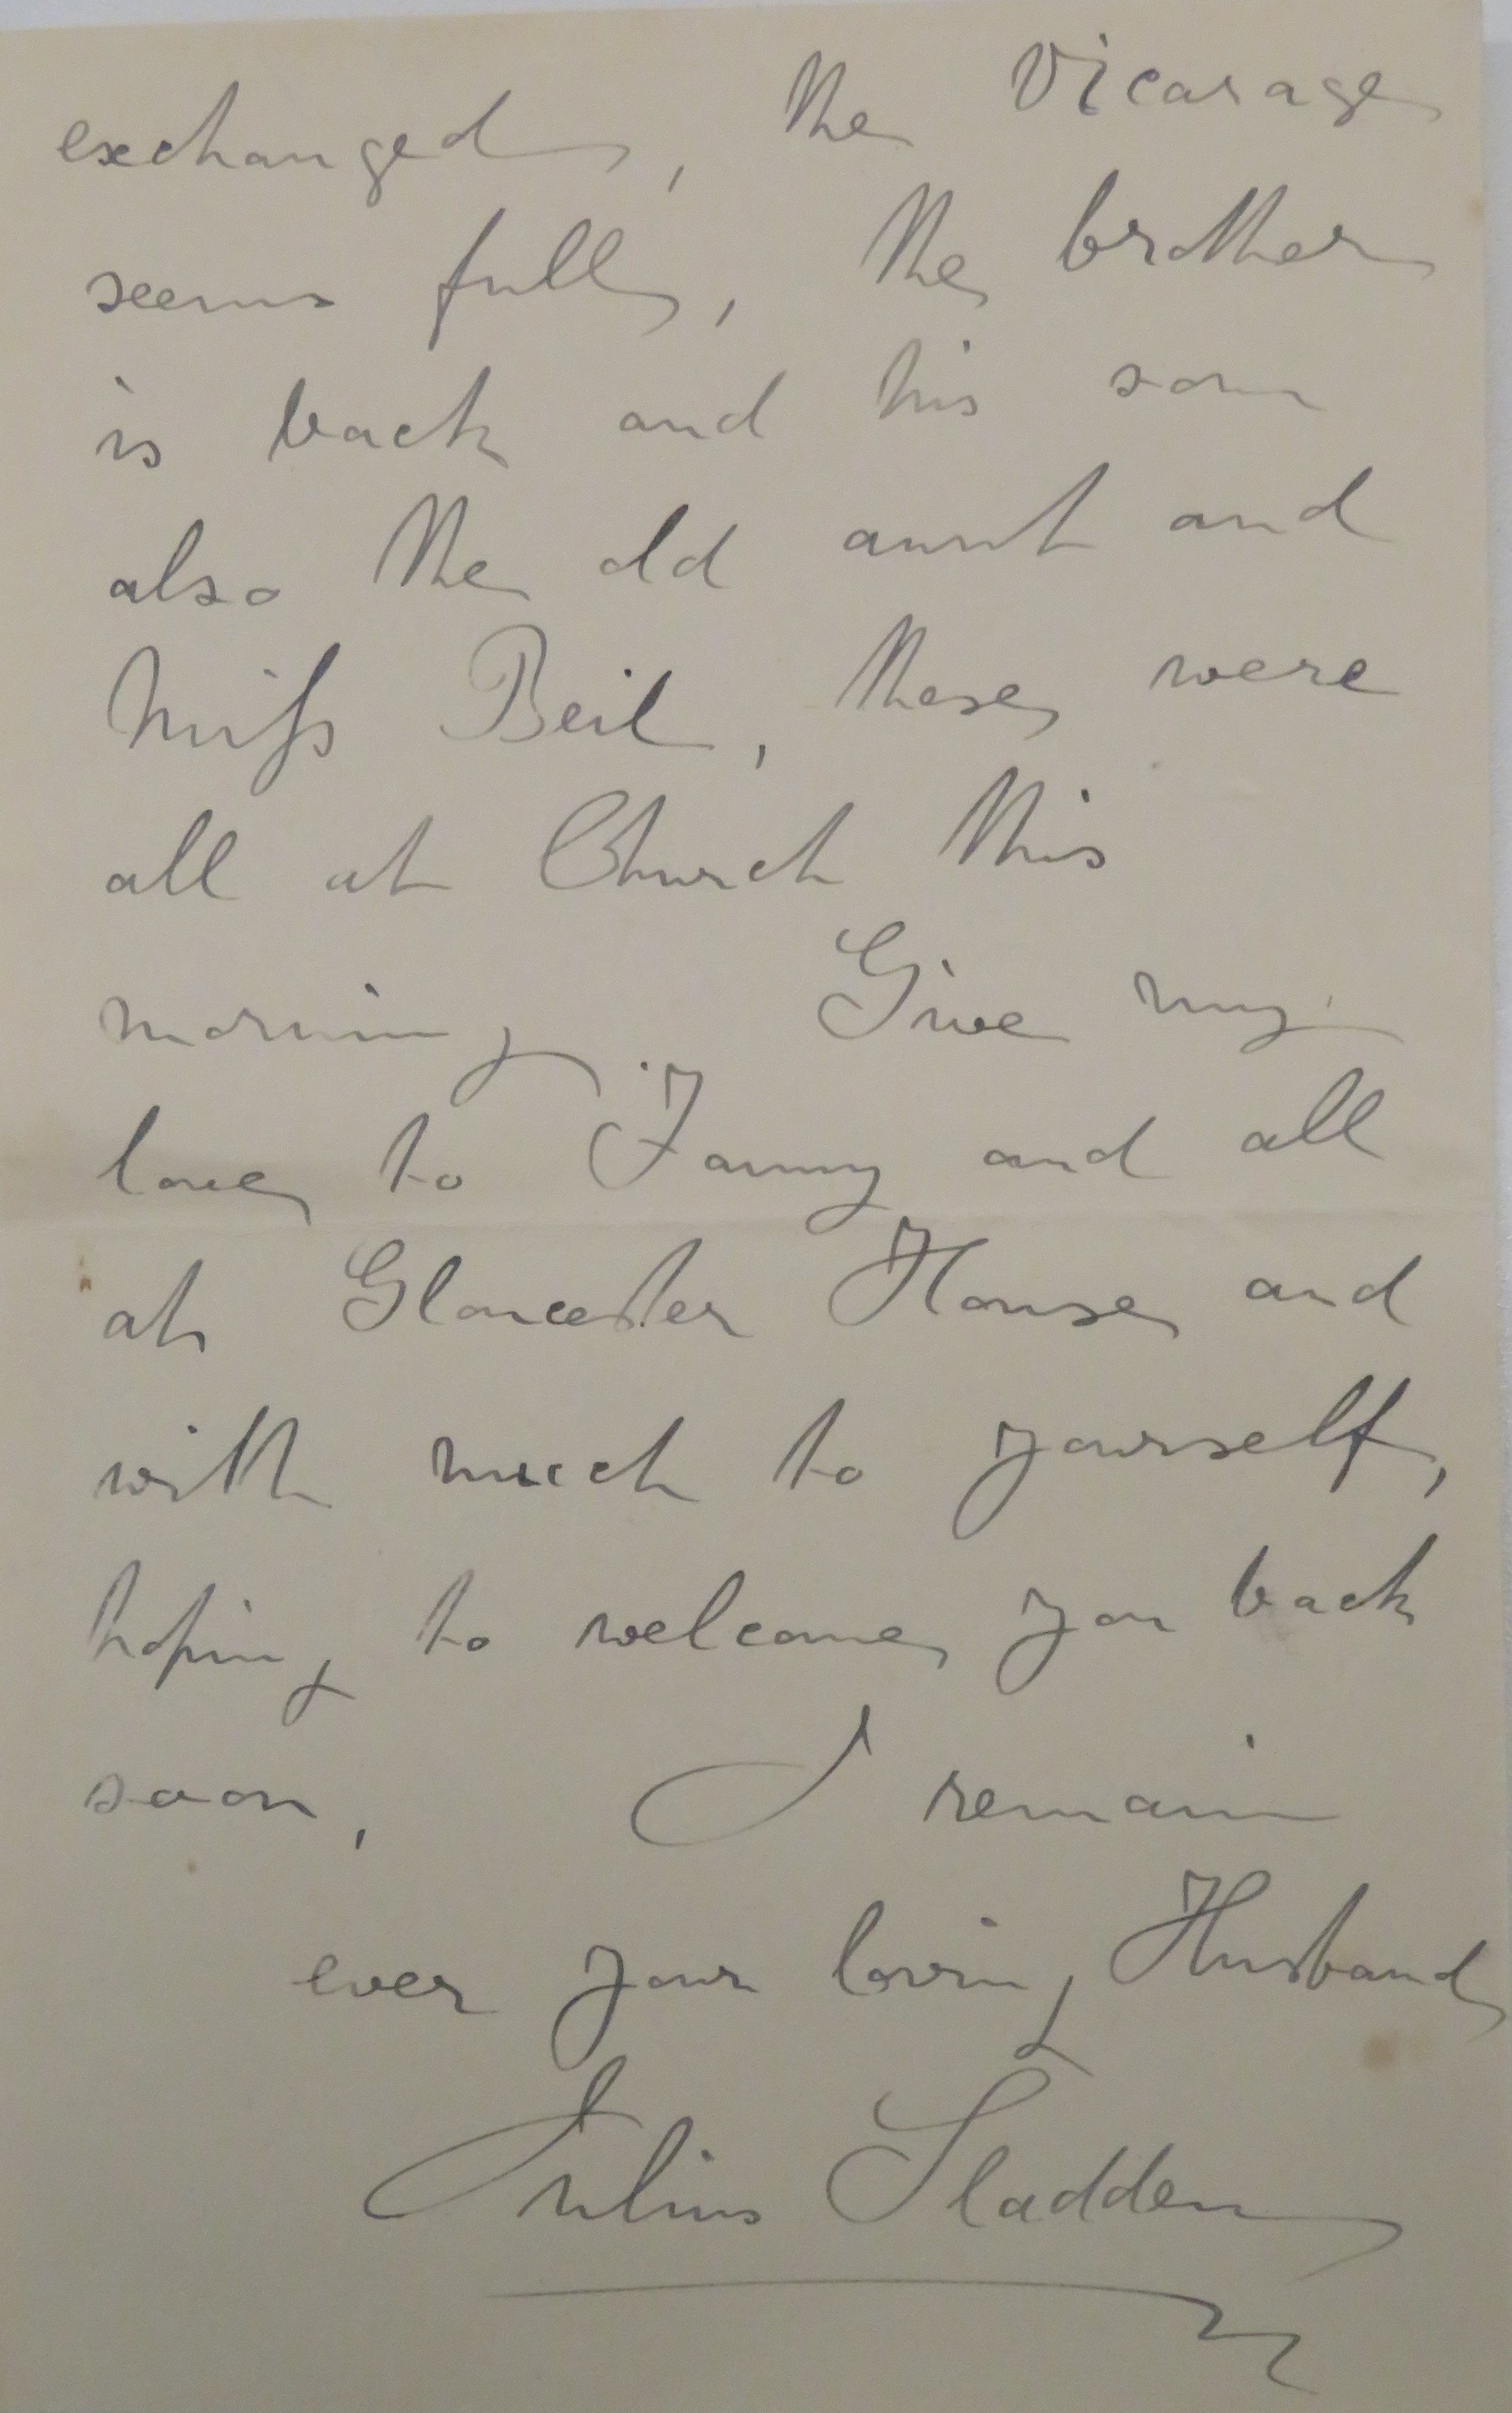 exchanged, the Vicarage
seems full, the brother
is back and his son
also the old aunt and
Miss Beil, these were
all at Church this
morning. Give my
love to Fanny and all
at Gloucester House and
with much to yourself,
hoping to welcome you back
soon, I remain
ever your loving Husband
Julius Sladden